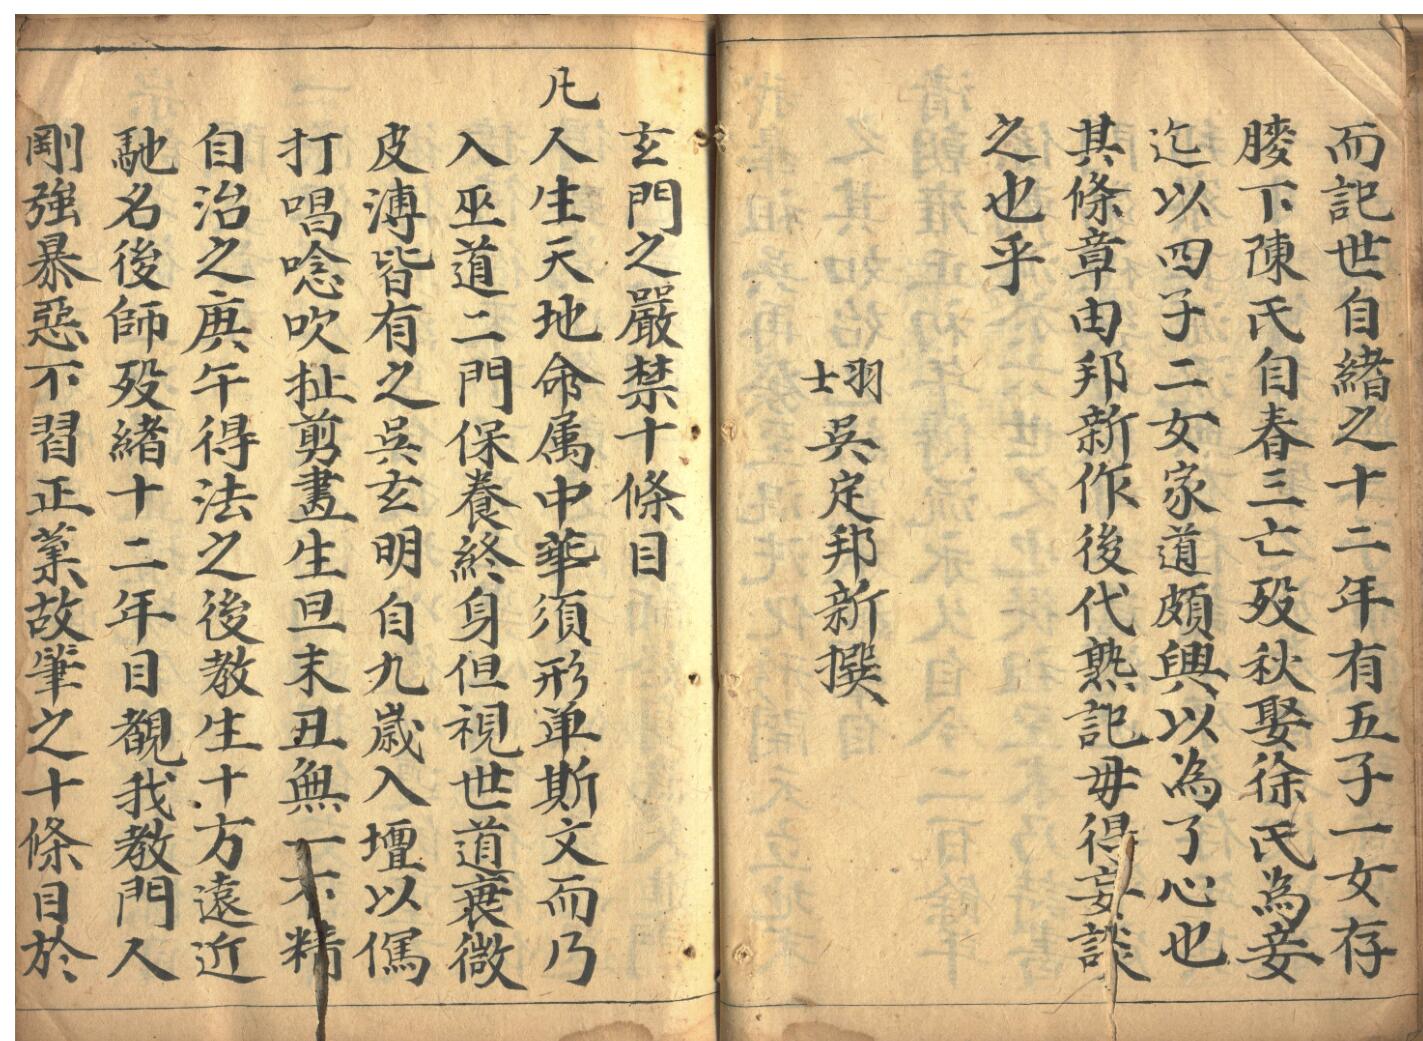 而記世自緒之十二年有五子一女存
膝下陳氏自春三亡殁秋娶徐氏為妾
迄以四子二女家道頗興以為了心也
其條章由邦新作後代熟記毋得妄談
之也乎
羽士吳定邦新撰
玄門之嚴禁十條目
凡人生天地命属中華須形单斯文而乃
入巫道二門保養終身但視世道衰微
皮溥皆有之吳玄明自九歲入壇以
打唱唸吹扯剪畫生旦末丑無一不精
自治之庚午得法之後教生十方遠近
馳名後師殁緒十二年目覩我教門人
剛強暴惡不習正業故筆之十條目於